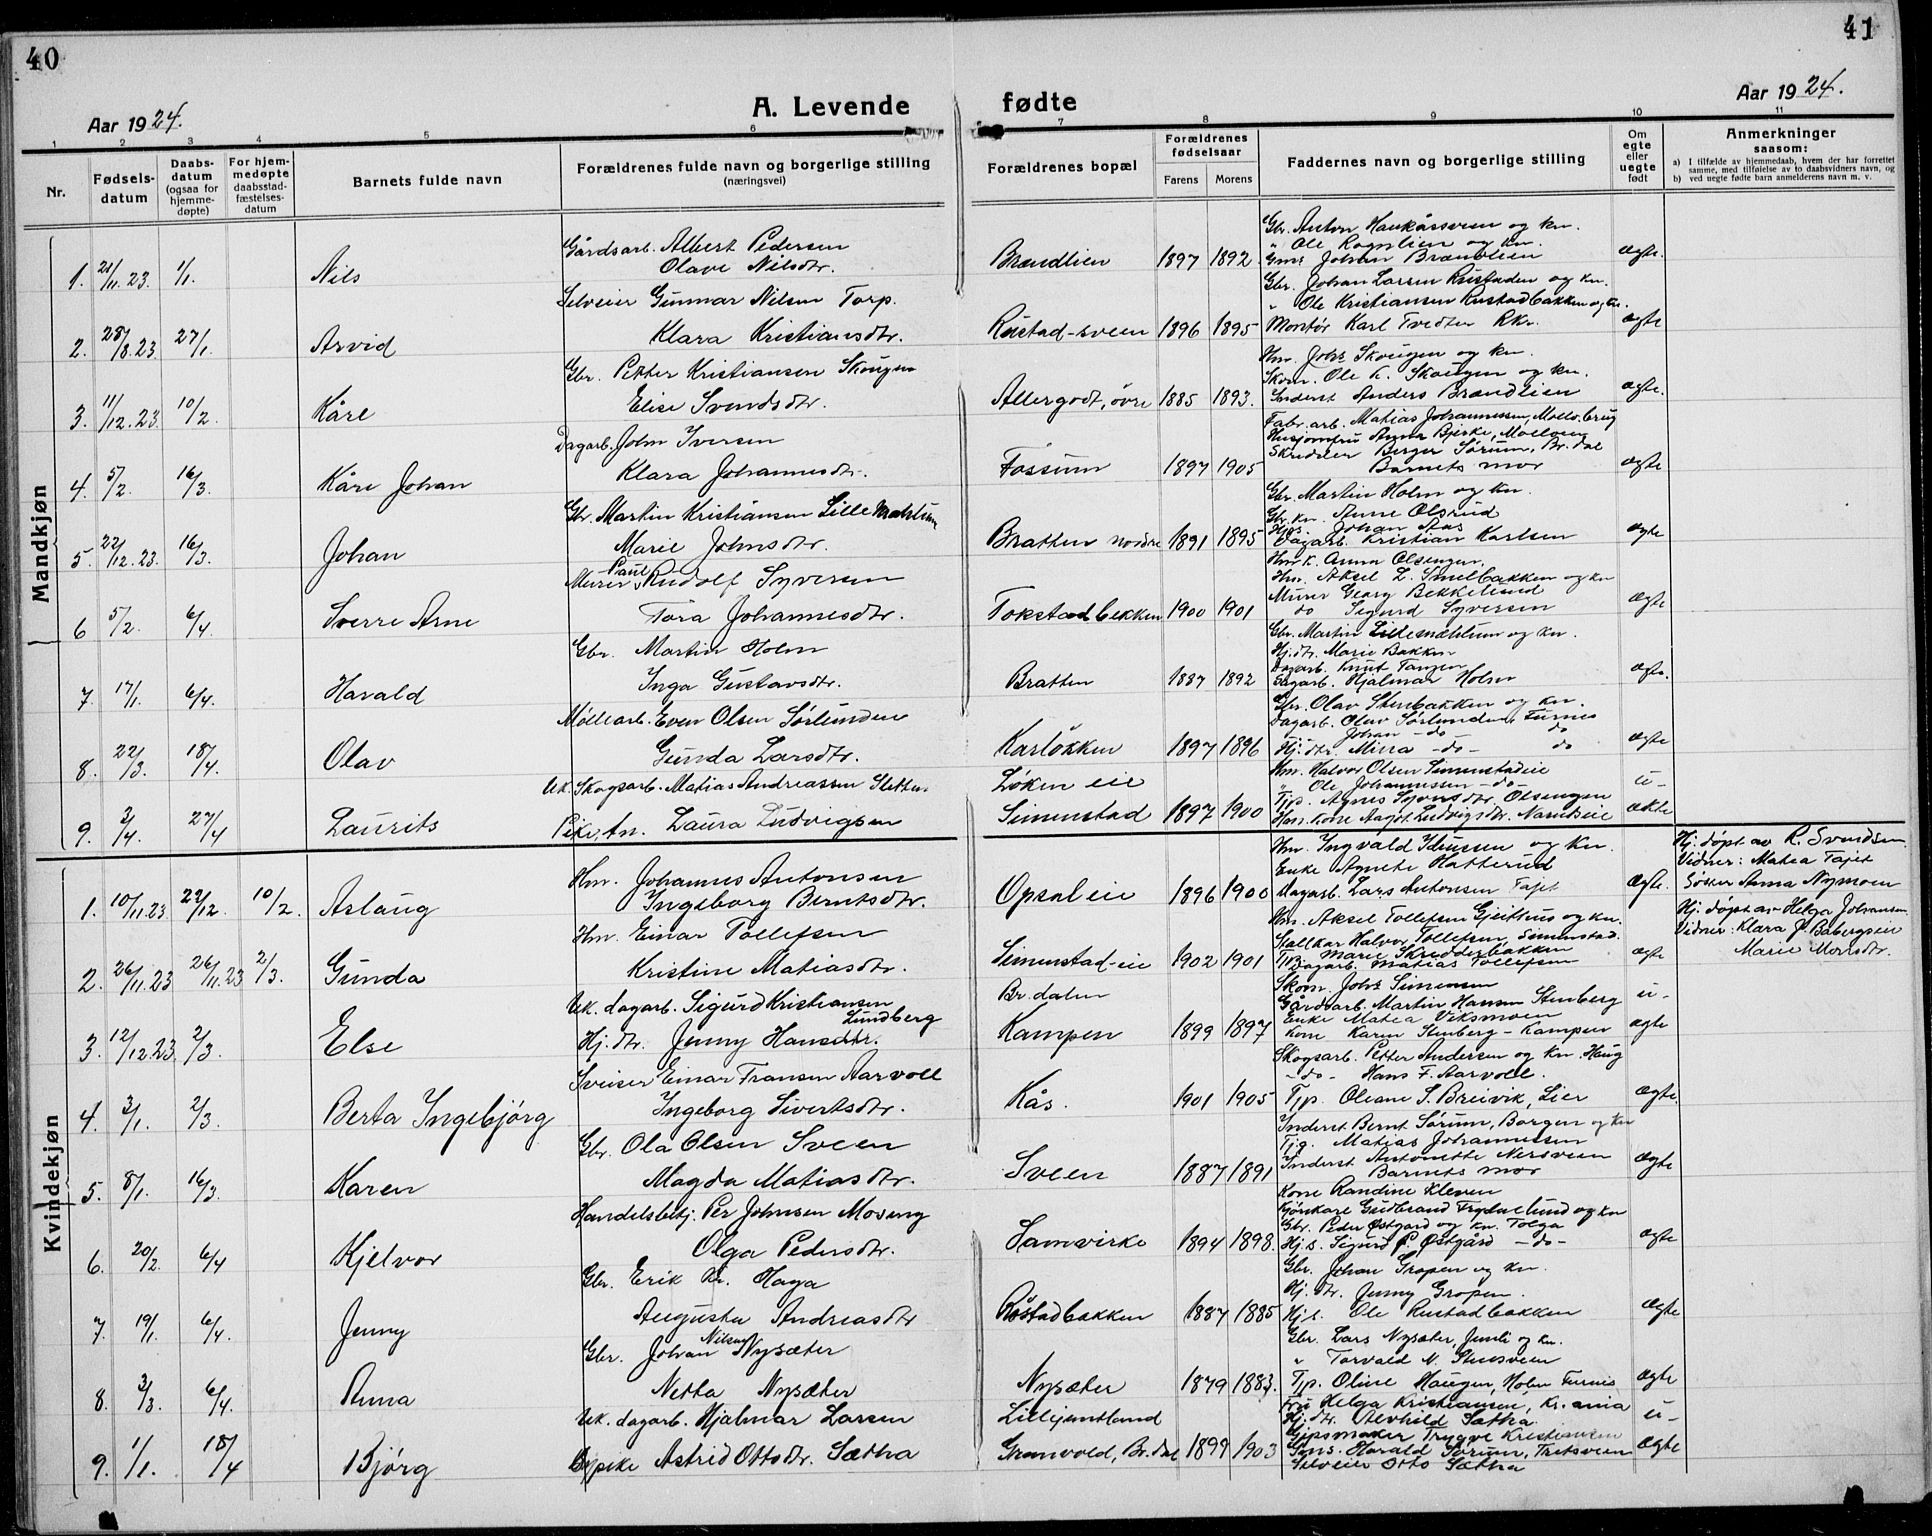 40
41
Aar 1924.
A. Levende fødte
Aar 1924.
1 2 3 4 5 6 7 8 9 10 11
Nr.
Fødsels-datum
Daabs-datum (ogsaa for hjemme-døpte)
For hjem-medøpte daabsstad-fæstelses-datum
Barnets fulde navn
Forældrenes fulde navn og borgerlige stilling (næringsvei)
Forældrenes bopæl
Forældrenes fødselsaar
Farens Morens
Faddernes navn og borgerlige stilling
Om egte eller uegte født
Anmerkninger saasom:
a) I tilfælde av hjemmedaab, hvem der har forrettet samme, med tilføielse av to daabsvidners navn, og
b) ved uegte fødte barn anmelderens navn m. v.
Mandkjøn
1. 21/11.23. 1/1. Nils
Gårdsarb. Albert Pedersen
Olave Nilsdtr.
Brændlien 1897 1892
Gbr. Anton Haukåssveen og kn.
" Ole Rognlien og kn.
Gms Johan Brændlien
ægte.
2. 28/8.23 27/1. Arvid
Selveier Gunnar Nilsen Torp.
Klara Kristiansdtr.
Rustad-sveen 1896 1895
Gbr. Johan Larsen Rustaden og kn.
" Ole Kristiansen Rustadbakken og kn.
Montør Karl Tvedter Rkr.
ægte
3. 11/12.23. 10/2. Kåre
Gbr. Petter Kristiansen Skougen
Elise Svendsdtr.
Allergodt, øvre 1885 1893.
Hm. Johs Skougen og kn.
Skom. Ole K. Skougen og kn.
Inderst Anders Brændlien
ægte.
4. 5/2. 16/3. Kåre Johan
Dagarb. John Iversen
Klara Johannesdtr.
Fossum 1897 1905
Fabr.arb. Matias Johannessen, Moelv.brug
Husjomfru Anna Bjerke, Moelven
Skrædder Berger Sørum, Br.dal
Barnets mor
ægte
5. 22/12.23. 16/3. Johan
Gbr. Martin Kristiansen Lille Mæhlum
Marie Johnsdtr.
Bratten nordre 1891 1895
Gbr. Martin Holm og kn.
Gbr.kn. Anne Olsrud
Hjs. Johan Aas
Dagarb. Kristian Karlsen
ægte
6 5/2. 6/4. Sverre Arne
Murer Paul Rudolf Syversen
Tora Johannesdtr.
Tokstadbekken 1900 1901
Hm K. Anna Olsengen,
Hm. Aksel L. Smelbakken og kn
Murer Georg Bekkelund
do Sigurd Syversen
ægte
7. 17/1. 6/4. Harald
Gbr. Martin Holm
Inga Gustavsdtr.
Bratten 1887 1892
Gbr. Martin Lillemæhlum og kn.
Hj.dtr. Marie Bakken
Dagarb. Knut Tangen
Dagarb. Hjalmar Holm
ægte.
8. 22/3. 18/4. Olav
Møllearb. Even Olsen Sørlunden
Gunda Larsdtr.
Karløkken 1897 1896
Gbr. Olav Stenbakken og kn.
Dagarb. Olav Sørlunden, Furnes
Johan -do- do
Hj.dtr. Mina -do- do
ægte
9. 3/4. 27/4 Laurits
Uk. Skogsarb. Matias Andreassen Sletten
Pike, An. Laura Ludvigsen
Løken eie
Simenstad 1897 1900
Hm. Halvor Olsen Simenstadeie
" Ole Johannessen -do-
Tjp. Agnes Syversdtr. Olsengen
Hm. Kone Aagot Ludvigsdtr. Narudseie
u-
ækte
Kvindekjøn
1. 10/11.23 22/12. 10/2. Aslaug
Hm. Johannes Antonsen
Ingeborg Berntsdtr.
Opsal eie 1896 1900
Hm. Ingvald Idrussen og kn.
Enke Agnete Hatterud
Dagarb. Lars Antonsen Tajet
Ægte.
Hj. døpt av R. Svendsen
Vidner: Matea Tajet
Søster Anna Nymoen
2. 26/11.23 26/11.23 2/3. Gunda
Hm. Einar Tollefsen
Kristine Matiasdtr.
Simenstad-eie 1902 1901
Hm. Aksel Tollefsen Gjeithus og kn.
Stallkar Halvor Tollefsen, Simenstad.
Tjp. Marie Skredderbakken
Dagarb. Matias Tollefsen
ægte
Hj. døpt av Helga Johansen
Vidner: Klara P. Babergseie
Marie Mortsdtr.
3. 12/12.23 2/3. Else
Uk. dagarb. Sigurd Kristiansen Lundberg
Hj.dtr. Jenny Hansdtr.
Br.dalen
Kampen 1899 1897
Skom. Johs Simensen
Gårdsarb. Martin Hansen Stenberg
Enke Matea Viksmoen
Kone Karen Stenberg - Kampen
u-
ægte
4. 3/1. 2/3. Berta Ingebjørg
Sveiser Einar Fransen Aarvoll
Ingeborg Sivertsdtr.
Kås. 1901 1905
Skogsarb. Petter Andersen og kn. Haug
-do- Hans F. Aarvoll.
Tjp. Oleane S. Breivik, Lier
Ægte.
5. 8/1. 16/3. Karen
Gbr. Ola Olsen Sveen
Magda Matiasdtr.
Sveen 1887 1891
Inderst Bernt Sørum, Borgen og kn
Tjg. Matias Johannessen
Inderst Antonette Nersveen
Barnets mor
Ægte
6. 20/2. 6/4 Kjelvor
Handelsbetj. Per Johnsen Moseng
Olga Pedersdtr.
Samvirke 1894 1898.
Kone Randine Kleven
Kjørekare Gudbrand Frydenlund og kn
Gbr. Peder Østgard og kn. Tolga
Hj.s. Sigurd P. Østgård -do-
ægte
7. 19/1. 6/4. Jenny
Gbr. Erik Kr. Haga
Augusta Andreasdtr
Rustadbakken 1887 1885
Gbr. Johan Gropen og kn.
Hj.dtr. Jenny Gropen.
Hj.s. Ole Rustadbakken
Ægte
8. 3/3. 6/4. Anna
Gbr. Johan Nilsen Nysæter
Netta Nysæter
Nysæter 1879 1883.
Gbr. Lars Nysæter, Jemli og kn.
" Torvald N. Stensveen
Tjp. Oline Haugen, Holm Furnes
Ægte
9. 1/1. 18/4 Bjørg
Uk. dagarb. Hjalmar Larsen
Sypike Astrid Ottosdtr. Sætha
Lillejemtland
Grønvold, Br.dal 1899 1903
Fru Helga Kristiansen, Kr.ania
Hj.dtr. Alvhild Sætha
Gipsmaker Trygve Kristiansen
Gms. Harald Sørum, Tretsveen
Selveier Otto Sætha
u-
Ægte